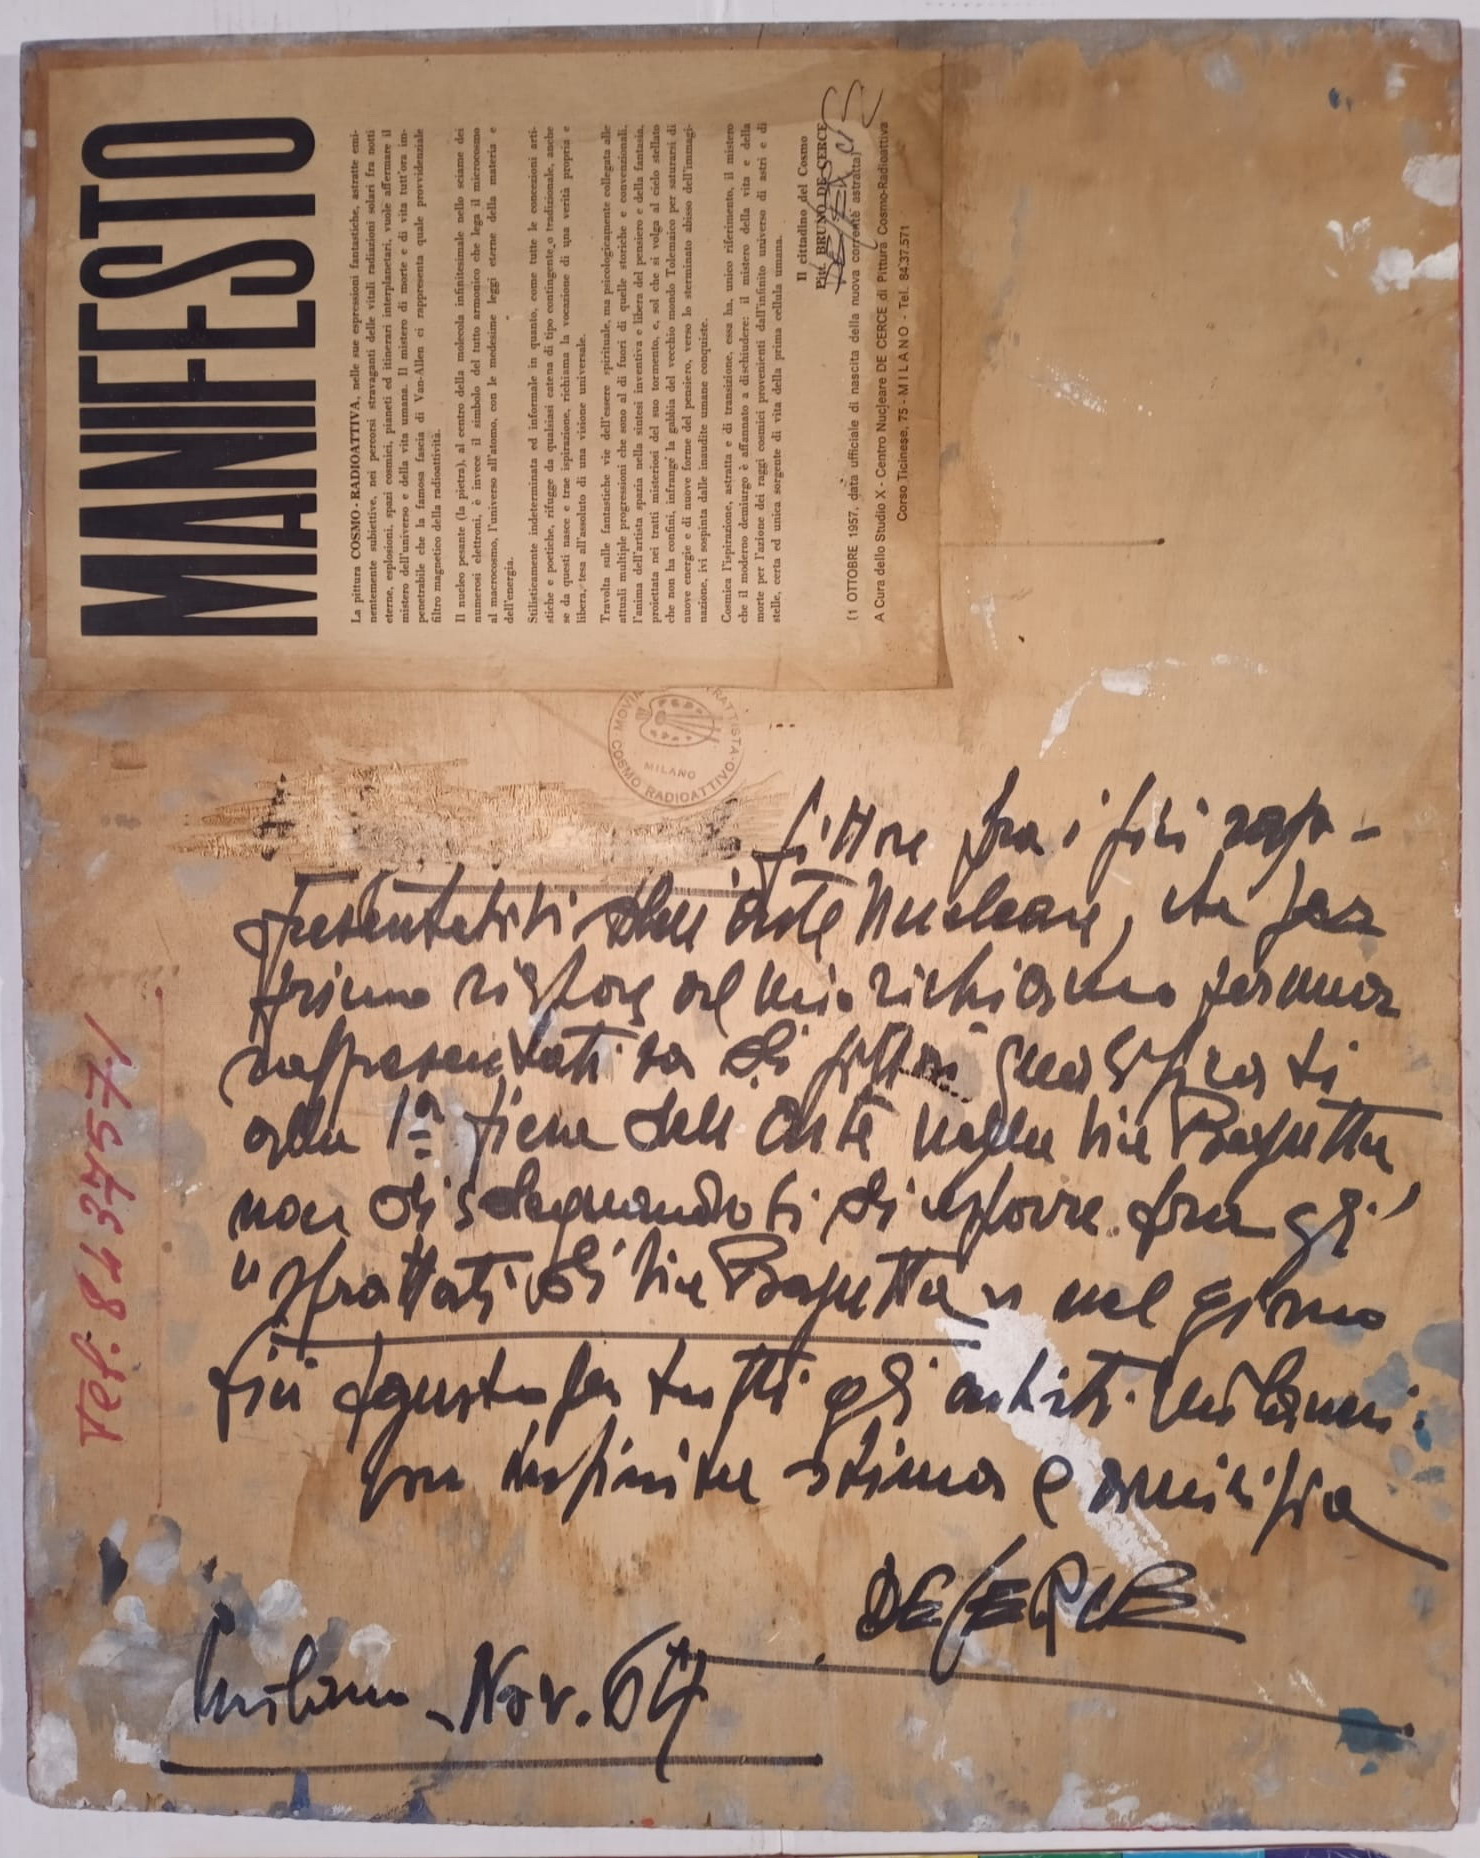 MANIFESTO
La pittura COSMO - RADIOATTIVA, nelle sue espressioni fantastiche, astratte emi-
nentemente subiettive, nei percorsi stravaganti delle vitali radiazioni solari fra notti
eterne, esplosioni, spazi cosmici, pianeti ed itinerari interplanetari, vuole affermare il
mistero dell'universo e della vita umana. Il mistero di morte e di vita tutt'ora im-
penetrabile che la famosa fascia di Van-Allen ci rappresenta quale provvidenziale
filtro magnetico della radioattività.
Il nucleo pesante (la pietra), al centro della molecola infinitesimale nello sciame dei
numerosi elettroni, è invece il simbolo del tutto armonico che lega il microcosmo
al macrocosmo, l'universo all'atomo, con le medesime leggi eterne della materia e
dell'energia.
Stilisticamente indeterminata ed informale in quanto, come tutte le concezioni arti-
stiche e poetiche, rifugge da qualsiasi catena di tipo contingente o tradizionale, anche
se da questi nasce e trae ispirazione, richiama la vocazione di una verità propria e
libera, tesa all'assoluto di una visione universale.
Travolta sulle fantastiche vie dell'essere spirituale, ma psicologicamente collegata alle
attuali multiple progressioni che sono al di fuori di quelle storiche e convenzionali,
l'anima dell'artista spazia nella sintesi inventiva e libera del pensiero e della fantasia,
proiettata nei tratti misteriosi del suo tormento, e, sol che si volga al cielo stellato
che non ha confini, infrange la gabbia del vecchio mondo Tolemaico per saturarsi di
nuove energie e di nuove forme del pensiero, verso lo sterminato abisso dell'immagi-
nazione, ivi sospinta dalle inaudite umane conquiste.
Cosmica l'ispirazione, astratta e di transizione, essa ha, unico riferimento, il mistero
che il moderno demiurgo è affannato a dischiudere: il mistero della vita e della
morte per l'azione dei raggi cosmici provenienti dall'infinito universo di astri e di
stelle, certa ed unica sorgente di vita della prima cellula umana.
Il cittadino del Cosmo
Pitt. BRUNO DE CERCE
(1 OTTOBRE 1957, data ufficiale di nascita della nuova corrente astratta)
A Cura dello Studio X - Centro Nucleare DE CERCE di Pittura Cosmo-Radioattiva
Corso Ticinese, 75 - MILANO - Tel. 84.37.571
COSMO RADIOATTIVO
MILANO
pittore fra i più rap-
presentativi dell'Arte Nucleare, che per
primo rispose al mio richiamo per una
rappresentativa di pittori qualificati
alla 1ª fiera dell'Arte nella Via Bagutta
non disdegnandosi di esporre fra gli
"sfrattati di Via Bagutta" nel giorno
più per tutti gli artisti milanesi.
con infinita stima e amicizia
DECERCE
Milano - Nov. 64
Tel. 8437571